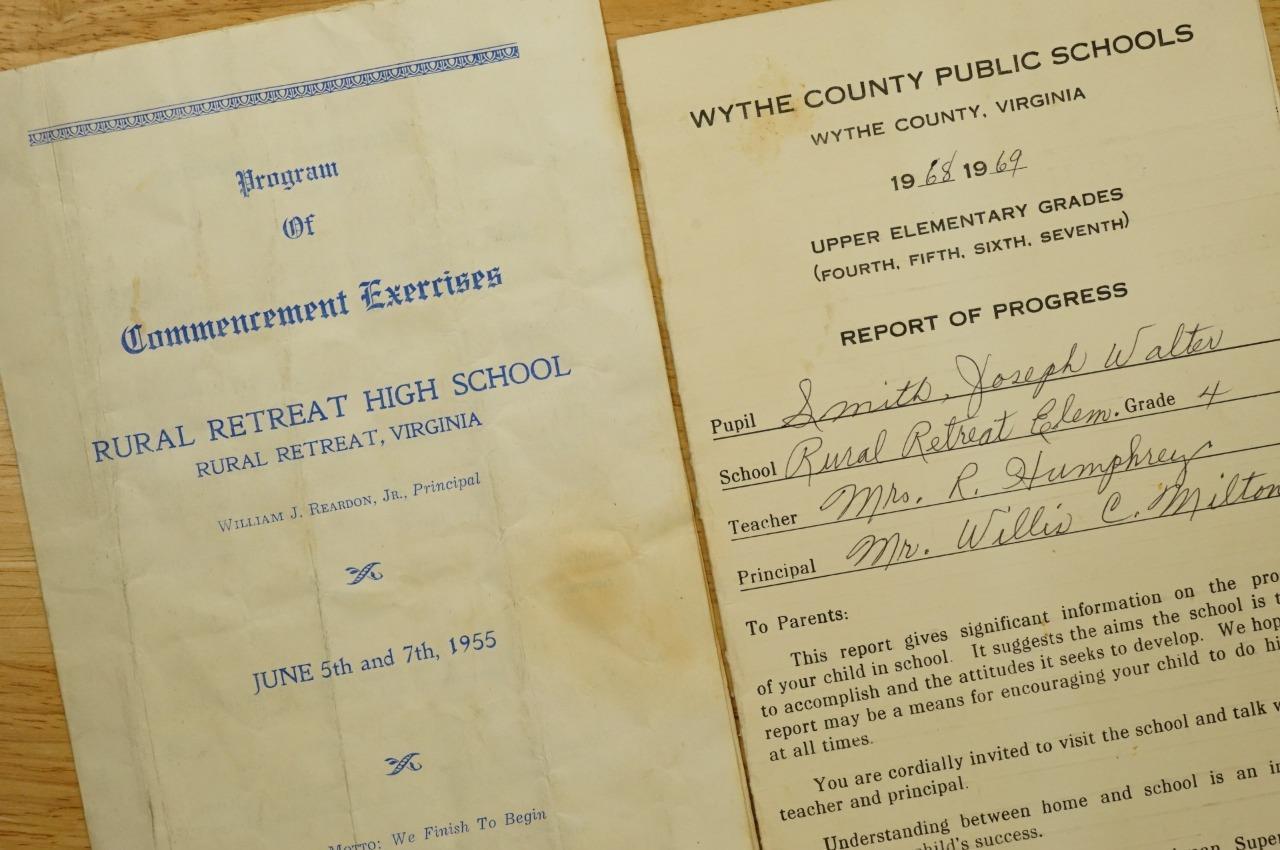 Program
Of
Commencement Exercises
RURAL RETREAT HIGH SCHOOL
RURAL RETREAT, VIRGINIA
WILLIAM J. REARDON, JR., Principal
JUNE 5th and 7th, 1955
MOTTO: We Finish To Begin
WYTHE COUNTY PUBLIC SCHOOLS
WYTHE COUNTY, VIRGINIA
1968 1969
UPPER ELEMENTARY GRADES
(FOURTH, FIFTH, SIXTH, SEVENTH)
REPORT OF PROGRESS
Pupil Smith, Joseph Walter
School Rural Retreat Elem. Grade 4
Teacher Mrs. R. Humphrey
Principal Mr. Willis C. Milton
To Parents:
This report gives significant information on the pro
of your child in school. It suggests the aims the school is t
to accomplish and the attitudes it seeks to develop. We hop
report may be a means for encouraging your child to do hi
at all times.
You are cordially invited to visit the school and talk w
teacher and principal.
Understanding between home and school is an i
child's success.
Super